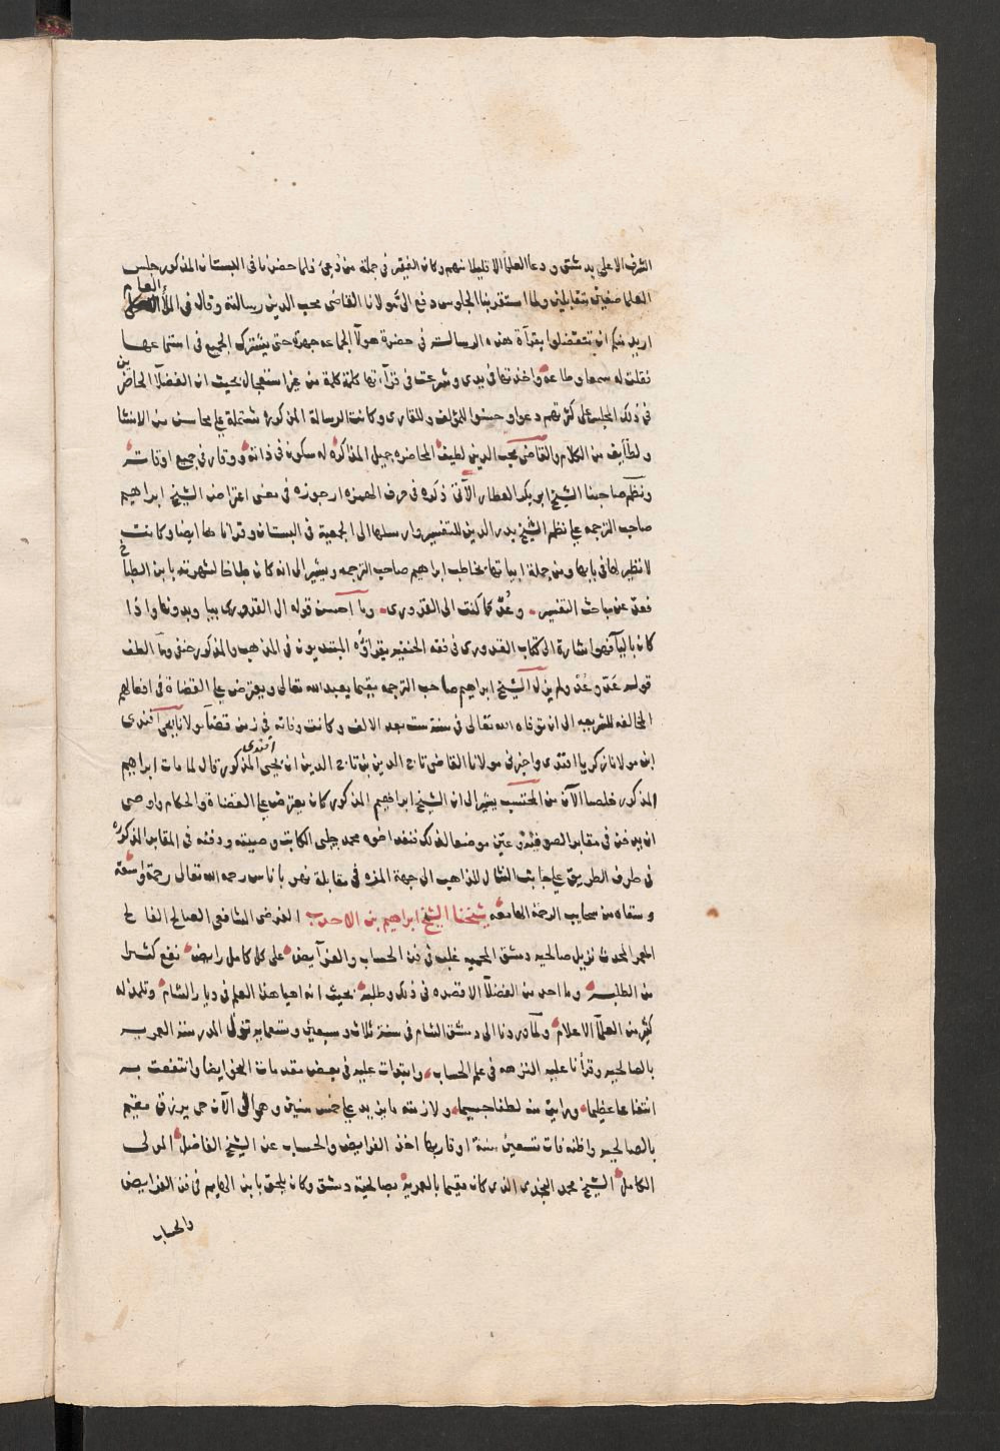 الشرف الاعلى بدمشق ودعا العلما الا قليلا منهم وكان الفقير في جملة من دعى ولما حضرنا في البستان المذكور جلس
العلما صفين متقابلين ولما استقر بنا الجلوس دفع الى مولانا القاضي محب الدين رسالته وقال في الملأ العام
اريد منكم ان تتفضلوا بقرآة هذه الرسالة في حضرة هولآ الجماعه جهرة حتى يشترك الجميع في استماعها
فقلت له سمعا وطاعه واخذتها في يدي وشرعت في قرآءتها كلمة كلمة من غير استعجال بحيث ان الفضلآ الحاضرين
في ذلك المجلس على كثرتهم دعوا وحسنوا للمؤلف وللقارى وكانت الرسالة المذكورة مشتملة على محاسن من الانشا
ولطايف من الكلام والقاضي محب الدين لطيف المحاضره جميل المذاكره له سكون في ذاته ووقار في جميع اوقاته
ونظم صاحبنا الشيخ ابو بكر العطار الآتى ذكره في حرف الهمزه ارجوزه في معنى اعتراض الشيخ ابراهيم
صاحب الترجمه على نظم الشيخ بدر الدين للتفسير وارسلها الى الجمعية في البستان وقراناها ايضا وكانت
لا نظير لها في بابها ومن جملة ابياتها يخاطب ابراهيم صاحب الترجمه ويشير الى انه كان طباخا لشهرته بابن الطباخ
فعد عن مباحث التفسير وعُد كما كنت الى القدورى وما احسن قوله الى القدورى بيا وبدونها واذا
كان باليا فهو اشارة الى كتاب القدورى في فقه الحنفيه يقراؤه المبتديون في المذهب والمذكور حنفى وما الطف
قوله عَد وعُد ولم يزل الشيخ ابراهيم صاحب الترجمه مقيما يعبد الله تعالى ويعترض على القضاة في افعالهم
المخالفه للشريعه الى ان توفاه الله تعالى في سنة ست بعد الالف وكانت وفاته في زمن قضآ مولانا يحيى افندى
ابن مولانا زكريا افندى واخبرنى مولانا القاضى تاج الدين بن تاج الدين ان يحيى افندى المذكور قال لما مات ابراهيم
المذكور خلصنا الآن من المحتسب يشير الى ان الشيخ ابراهيم المذكور كان يعترض على القضاة والحكام واوصى
ان يدفن في مقابر الصوفيه وعين موضعا لذلك فنفذ اخوه محمد چلبى الكاتب وصيته ودفنه في المقابر المذكوره
في طرف الطريق على جانبه الشمال للذاهب الى جهة المزه في مقابلة نهر باناس رحمه الله تعالى رحمة واسعة
وسقاه من سحايب الرحمة الهامعه شيخنا الشيخ ابراهيم بن الاحدب الفرضى الشافعى الصالح الفالح
المعمر المحدث نزيل صالحيه دمشق المحميه غلب في فن الحساب والفرآيض على كل كامل رايض نفع كثيرا
من الطلبه وما احد من الفضلآ الا قصده في ذلك وطلبه بحيث انه احيا هذا العلم في ديار الشام وتلمذ له
كثير من العلمآ الاعلام ولما وردنا الى دمشق الشام في سنة ثلاث وسبعين وتسعمايه نزل المدرسة العمريه
بالصالحيه وقرأنا عليه النزهه في علم الحساب وابتدات عليه في بعض مقدمات النحو ايضا وانتفعت به
انتفاعا عظيما ورايت منه لطفا جسيما ولازمته ما يزيد على خمس سنين وهو الى الآن حى يرزق مقيم
بالصالحيه واظنه فات تسعين سنة او قاربها اخذ الفرايض والحساب عن الشيخ الفاضل المولى
الكامل الشيخ محمد النجدى الذى كان مقيما بالعمرية بصالحية دمشق وكان يلحق بابن الهايم في فن الفرايض
والحساب